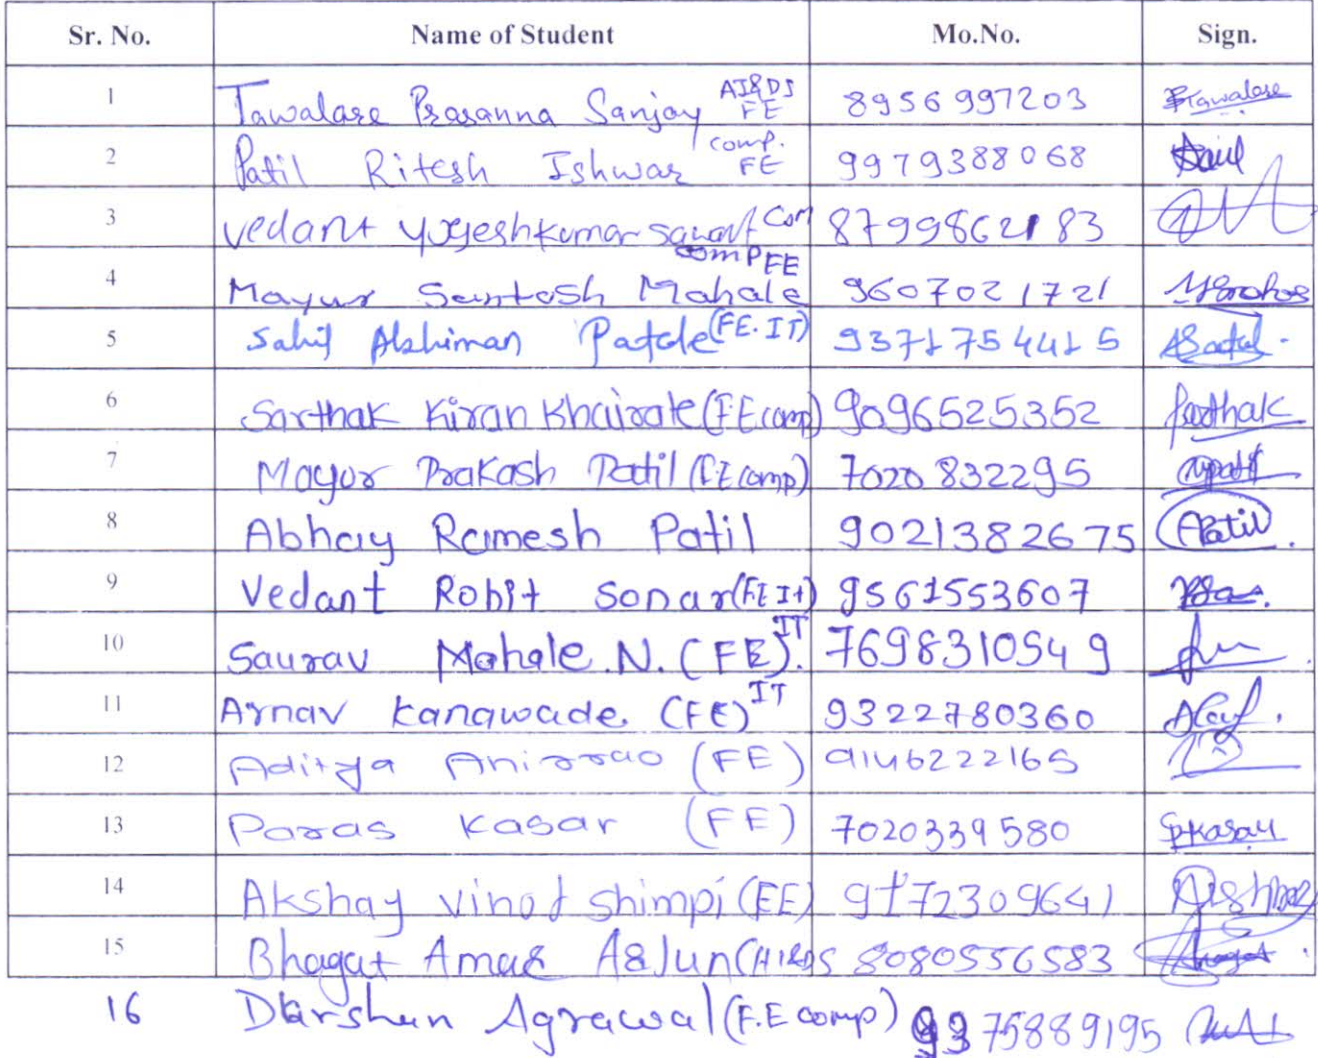 Sr. No. Name of Student Mo.No. Sign.
1 Tawalare Prasanna Sanjay AI&DS FE 8956997203 PTawalare
2 Patil Ritesh Ishwar comp. FE 9979388068
3 vedant yogeshkumar sawant com 8799862183
4 Mayur Santosh Mahale comp FE 9607021721
5 Sahil Abhiman Patole (FE.IT) 9371754415
6 Sarthak Kiran Khairate (FE comp) 9096525352 Sarthak
7 Mayur Prakash Patil (FE comp) 7020832295 mpatil
8 Abhay Ramesh Patil 9021382675 APatil
9 Vedant Rohit Sonar (FE It) 9561553607
10 Saurav Mahale.N. (FE). IT 7698310549
11 Arnav Kanawade (FE) IT 9322780360
12 Aditya Anirrao (FE) 9146222165
13 Paras Kasar (FE) 7020339580 pkasar
14 Akshay Vinod Shimpi (FE) 9172309641
15 Bhagat Amar Arjun (AI&DS 8080556583 Bhagat
16 Darshan Agrawal (F.E comp) 9375889195